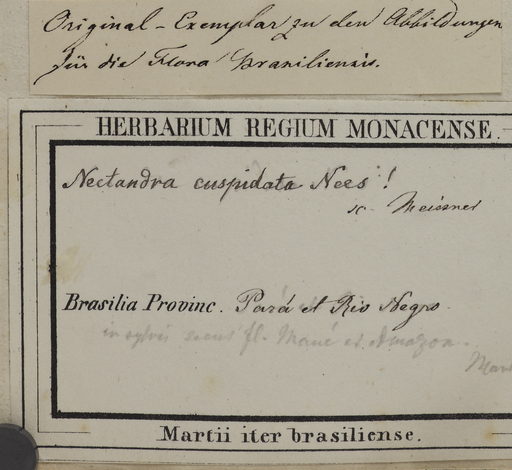 Original-Exemplar zu den Abbildungen
für die Flora brasiliensis.
HERBARIUM REGIUM MONACENSE.
Nectandra cuspidata Nees!
Meissner
Brasilia Provinc. Pará et Rio Negro.
in sylvis secus fl. Maué et Amazon.
Mart
Martii iter brasiliense.